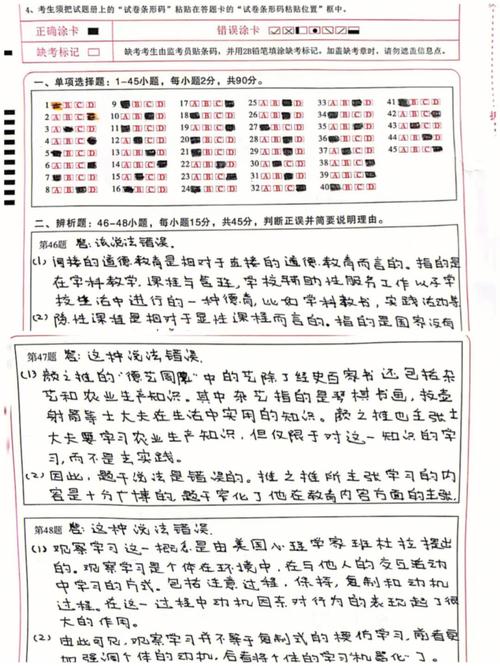 4、考生须把试题册上的“试卷条形码”粘贴在答题卡的“试卷条形码粘贴位置”框中。
正确涂卡 错误涂卡
缺考标记 缺考考生由监考员贴条码，并用2B铅笔填涂缺考标记。加盖缺考章时，请勿遮盖信息点。
一、单项选择题：1-45小题，每小题2分，共90分。
1 B C D 9 B C D 17 A B C 25 A B D 33 A B D 41 B C D
二、辨析题：46-48小题，每小题15分，共45分，判断正误并简要说明理由。
第46题 答：该说法错误。
(1) 间接的道德教育是相对于直接的道德教育而言的。指的是
在学科教学、课程与管理，学校辅助性服务工作以及学
校生活中进行的一种德育，比如学科教书，实践活动等
(2) 隐性课程是相对于显性课程而言的。指的是国家没有
第47题 答：这种说法错误。
(1) 颜之推的“德艺周厚”中的艺除了经史百家书还包括杂
艺和农业生产知识。其中杂艺指的是琴棋书画，投壶
射箭等士大夫在生活中实用的知识。颜之推也主张士
大夫要学习农业生产知识，但仅限于对这一知识的学
习，而不是去实践。
(2) 因此，题干说法是错误的。推之推所主张学习的内
容是十分广博的，题干窄化了他在教育内容方面的主张。
第48题 答：这种说法错误。
(1) 观察学习这一概念是由美国心理学家班杜拉提出
的。观察学习是个体在环境中，在与他人的交互活动
中学习的方式。包括注意过程，保持，复制和动机
过程。在这一过程中动机因素对行为的表现起了很
大的作用。
(2) 由此可见，观察学习并不等于复制式的模仿学习，前者更
加强调个体的动机，后者将个体的学习机器化了。